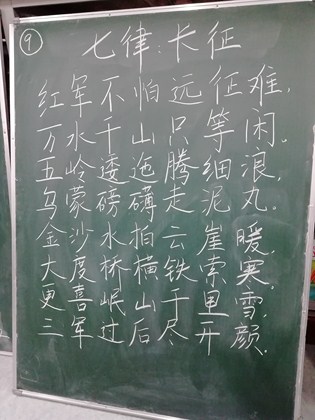 ⑨ 七律:长征
红军不怕远征难,
万水千山只等闲。
五岭逶迤腾细浪,
乌蒙磅礴走泥丸.
金沙水拍云崖暖,
大度桥横铁索寒.
更喜岷山千里雪,
三军过后尽开颜.